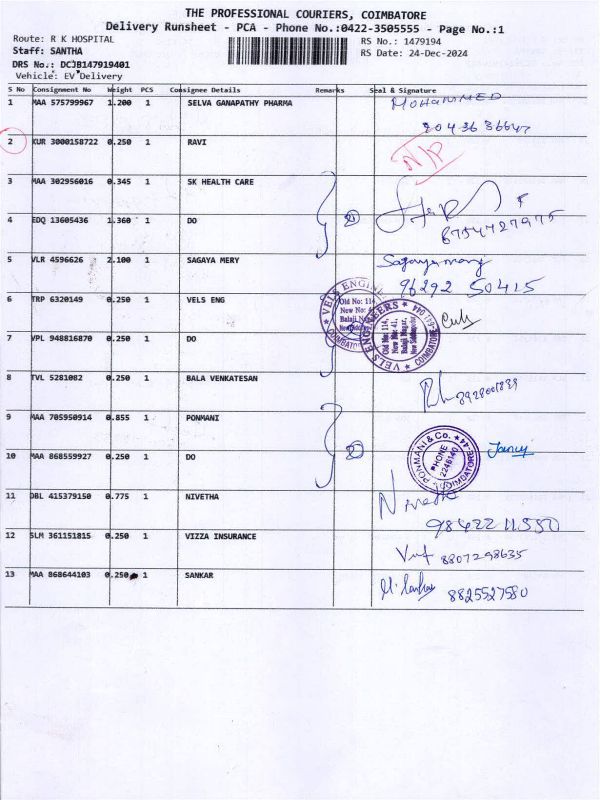 THE PROFESSIONAL COURIERS, COIMBATORE
Delivery Runsheet - PCA - Phone No.:0422-3505555 - Page No.:1
Route: R K HOSPITAL
RS No.: 1479194
Staff: SANTHA
RS Date: 24-Dec-2024
DRS No.: DCJB147919401
Vehicle: EV Delivery
S No Consignment No Weight PCS Consignee Details Remarks Seal & Signature
1 MAA 575799967 1.200 1 SELVA GANAPATHY PHARMA MOHAMMED
2 KUR 3000158722 0.250 1 RAVI N/P
3 MAA 302956016 0.345 1 SK HEALTH CARE
4 EDQ 13605436 1.360 1 DO 8754727975
5 VLR 4596626 2.100 1 SAGAYA MERY Sagayamary
96292 50415
6 TRP 6320149 0.250 1 VELS ENG
VELS ENGINEERS
Old No: 114,
New No: 41,
Balaji Nagar,
COIMBATORE
7 VPL 948816870 0.250 1 DO
8 TVL 5281082 0.250 1 BALA VENKATESAN
9 MAA 705950914 0.855 1 PONMANI
10 MAA 868559927 0.250 1 DO
PONMANI & Co.
PHONE
2246140
COIMBATORE-44
11 DBL 415379150 0.775 1 NIVETHA Nivetha
98422 11550
12 SLM 361151815 0.250 1 VIZZA INSURANCE 8807298635
13 MAA 868644103 0.250 1 SANKAR 8825527580